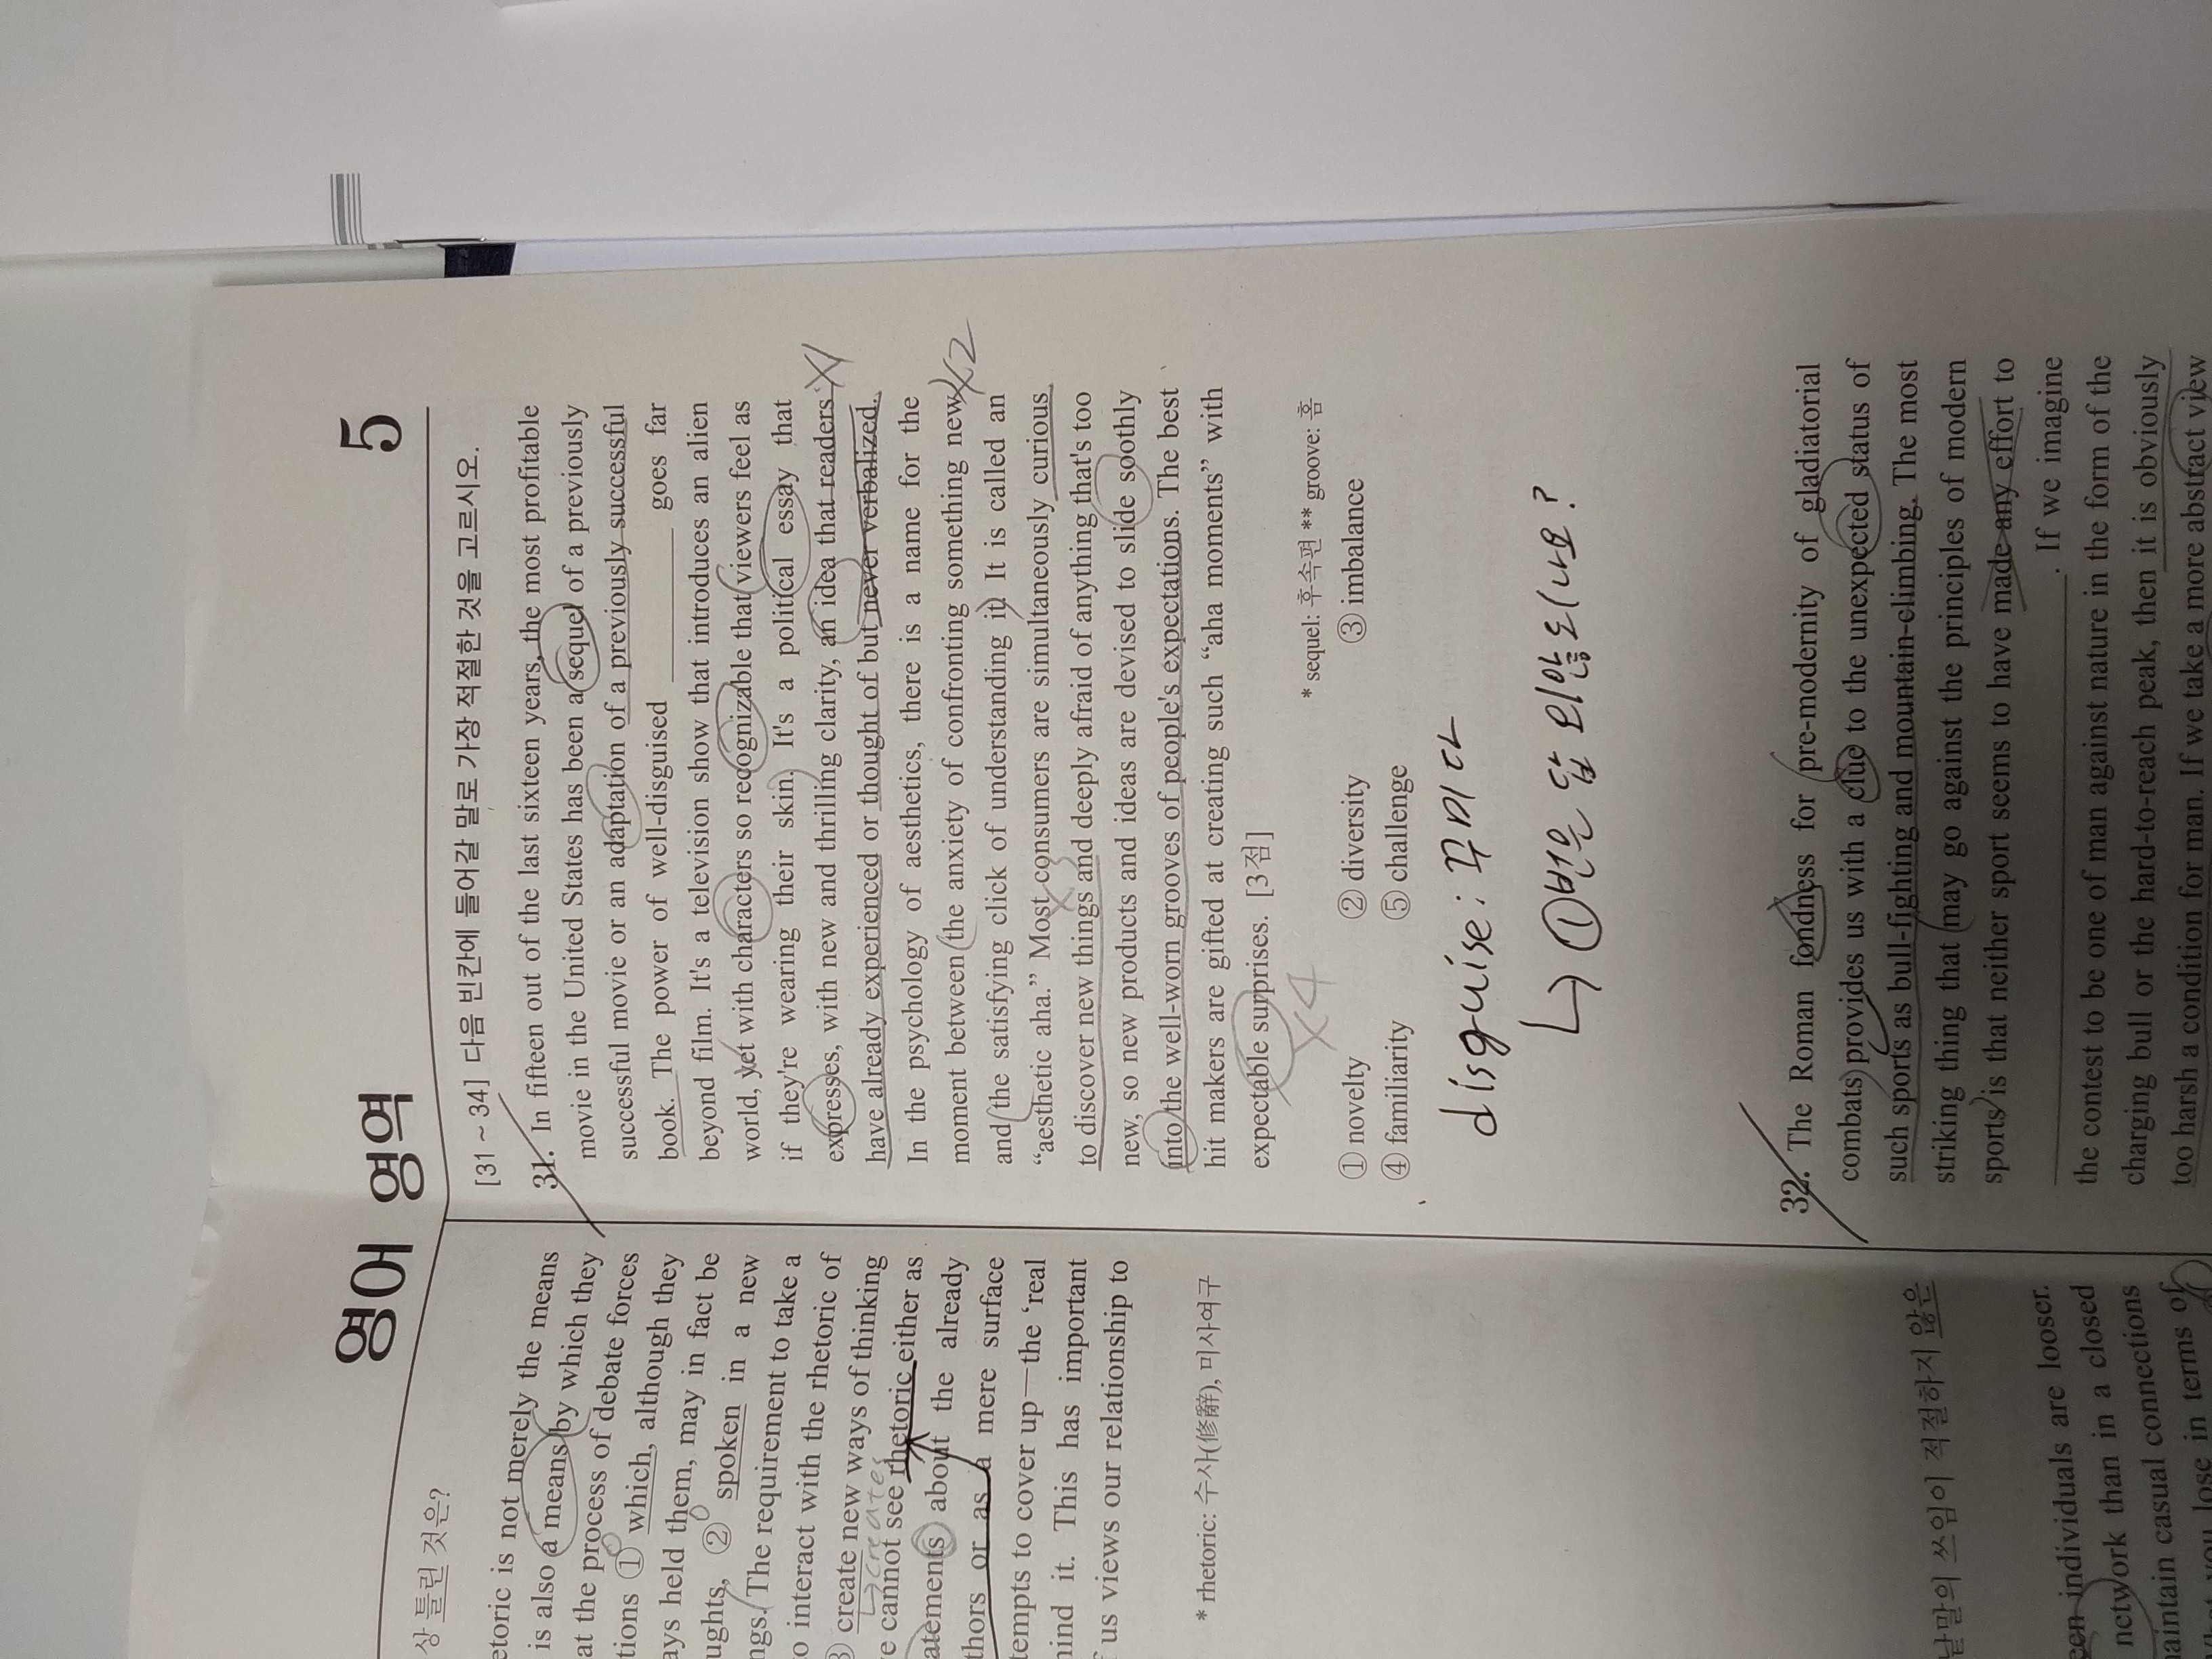 영어 영역
5
상 틀린 것은?
etoric is not merely the means
is also a means by which they
at the process of debate forces
tions ① which, although they
ays held them, may in fact be
ughts, ② spoken in a new
ngs. The requirement to take a
o interact with the rhetoric of
③ create new ways of thinking
↳creates
e cannot see rhetoric either as
atements about the already
thors or as a mere surface
tempts to cover up—the ‘real
hind it. This has important
f us views our relationship to
* rhetoric: 수사(修辭), 미사여구
낱말의 쓰임이 적절하지 않은
een individuals are looser.
network than in a closed
aintain casual connections
you lose in terms of
[31 ~ 34] 다음 빈칸에 들어갈 말로 가장 적절한 것을 고르시오.
31. In fifteen out of the last sixteen years, the most profitable
movie in the United States has been a sequel of a previously
successful movie or an adaptation of a previously successful
book. The power of well-disguised ________ goes far
beyond film. It's a television show that introduces an alien
world, yet with characters so recognizable that viewers feel as
if they're wearing their skin. It's a political essay that
expresses, with new and thrilling clarity, an idea that readers X1
have already experienced or thought of but never verbalized.
In the psychology of aesthetics, there is a name for the
moment between the anxiety of confronting something new X2
and the satisfying click of understanding it. It is called an
“aesthetic aha.” Most consumers are simultaneously curious
to discover new things and deeply afraid of anything that's too
new, so new products and ideas are devised to slide soothly
into the well-worn grooves of people's expectations. The best
hit makers are gifted at creating such “aha moments” with
expectable surprises. [3점]
X4
* sequel: 후속편 ** groove: 홈
① novelty ② diversity ③ imbalance
④ familiarity ⑤ challenge
disguise: 꾸미다
↳ ①번은 답 왜 않되나요?
32. The Roman fondness for pre-modernity of gladiatorial
combats provides us with a clue to the unexpected status of
such sports as bull-fighting and mountain-climbing. The most
striking thing that may go against the principles of modern
sports is that neither sport seems to have made any effort to
________. If we imagine
the contest to be one of man against nature in the form of the
charging bull or the hard-to-reach peak, then it is obviously
too harsh a condition for man. If we take a more abstract view